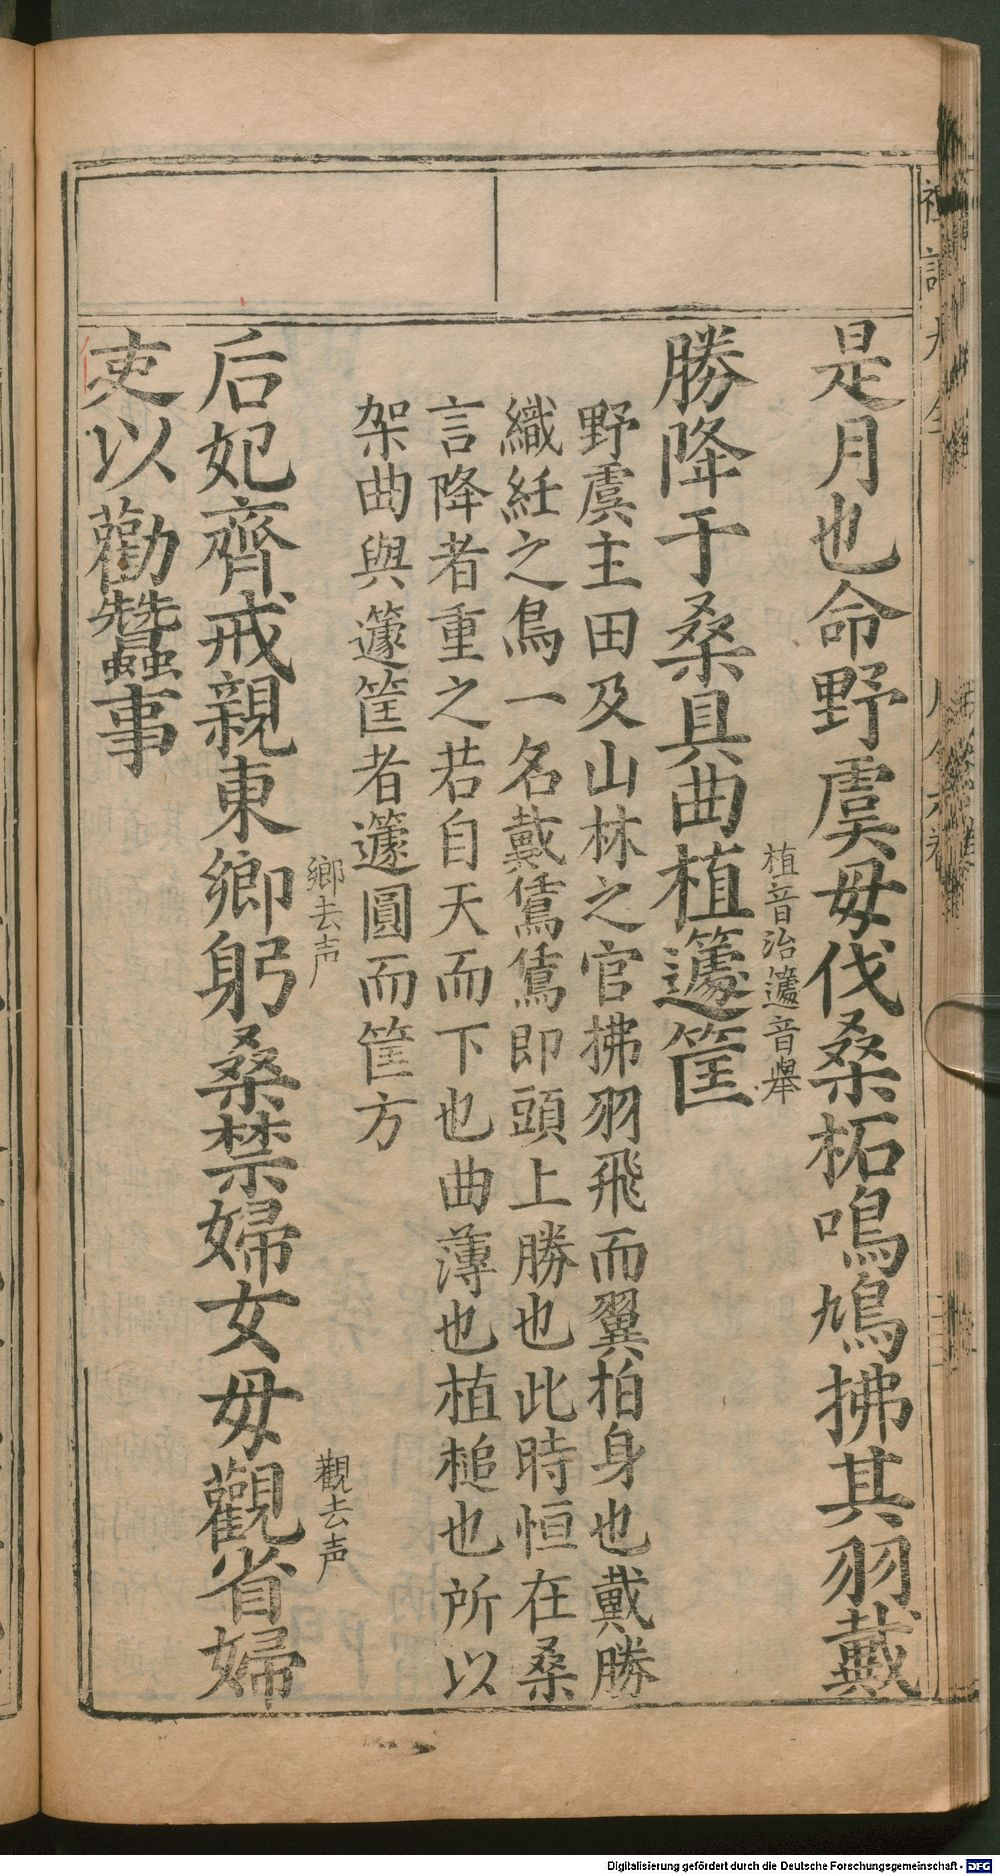 是月也命野虞毋伐桑柘鳴鳩拂其羽戴
植音治籧音舉
勝降于桑具曲植籧筐
野虞主田及山林之官拂羽飛而翼拍身也戴勝
織紝之鳥一名戴鵀鵀即頭上勝也此時恒在桑
言降者重之若自天而下也曲薄也植槌也所以
架曲與籧筐者籧圓而筐方
鄉去声
觀去声
后妃齊戒親東鄉躬桑禁婦女毋觀省婦
吏以勸蠶事
Digitalisierung gefördert durch die Deutsche Forschungsgemeinschaft - DFG